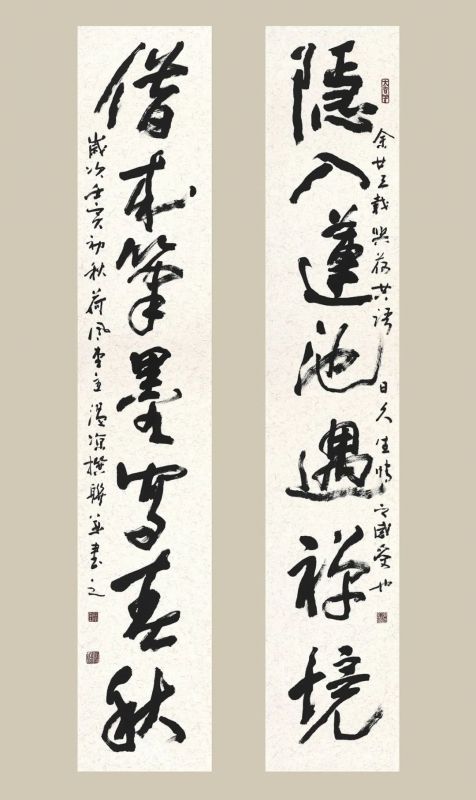 隱入蓮池遇禪境
余廿三載與荷共語
日久生情之感受也
借來筆墨寫春秋
歲次壬寅初秋荷風堂主撰聯並書之